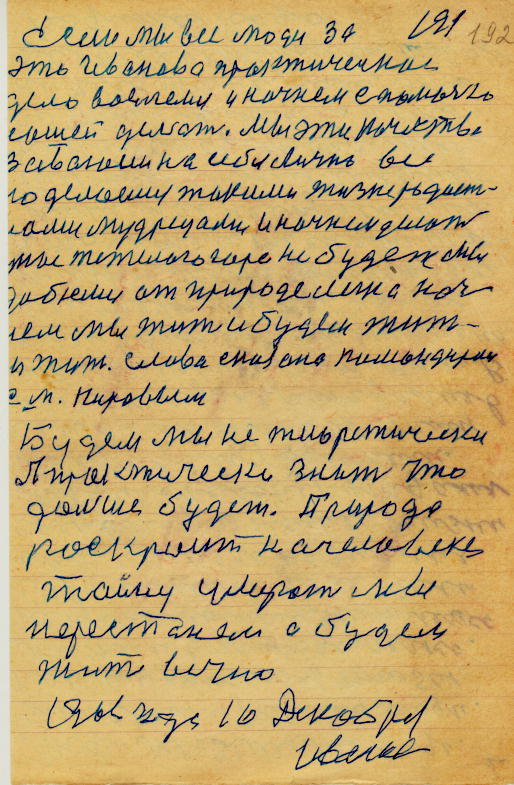 191 192
Если мы все люди за
это Иванова практическое
дело возмемся и начнем с помочью
ношей делат. Мы эти качества
завоюим на себи лично все
поделаемся такими жизнерадост-
ными мудрецами и начнем делат
мы тежелого горо не будеж мы
добюемся от природе
чем мы жит и будем жит-
и жит. Слова сказано командиром
с м. Кировым
Будем мы не тиоретически
А практически знат что
дальше будет. Природа
роскроит на человеке
тайну умерат мы
перестанем а будем
жит вечно
года 10 Декабря
Иванов